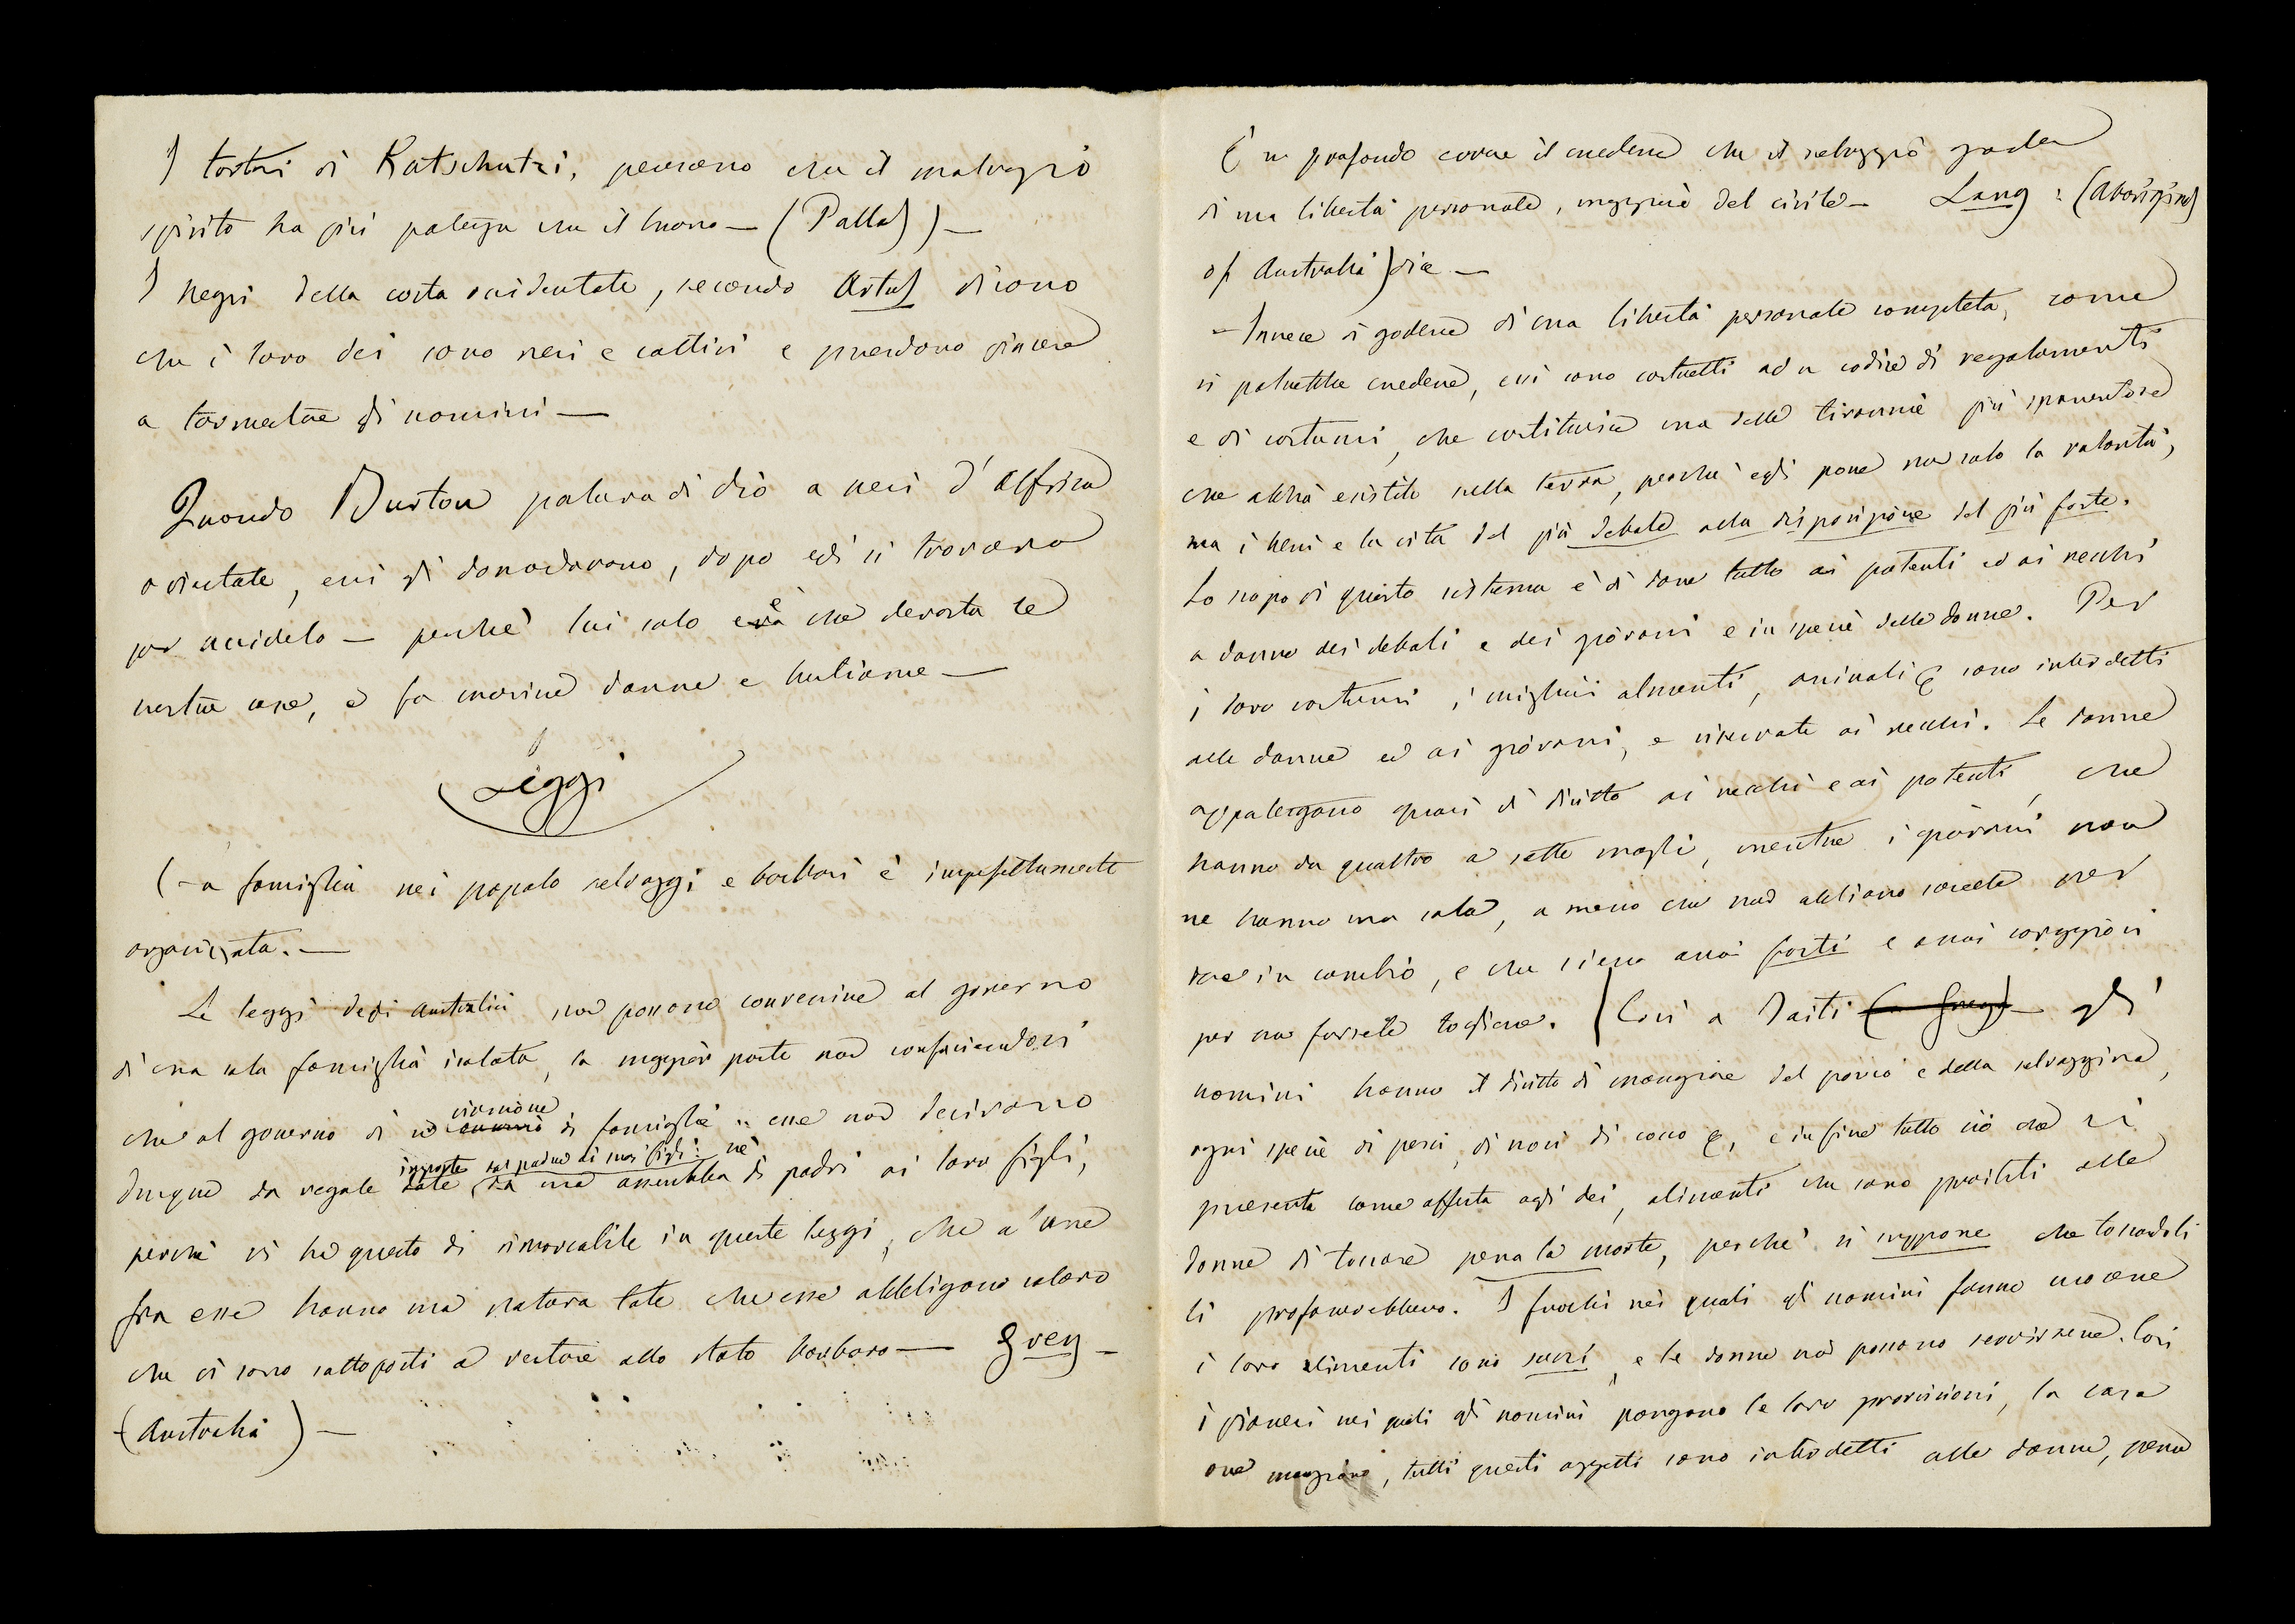 I tartari di Katschutzi, pensano che il malvagio
spirito ha più potenza che il buono — (Pallas) —
I negri della costa occidentale, secondo Artus dicono
che i loro dei sono neri e cattivi e prendono piacere
a tormentare gli uomini —
Quando Burton parlava di dio a neri d'Africa
orientale, essi gli domandavano, dopo egli si trovava
per ucciderlo — perchè lui solo è che devasta le
nostre case, e fa morire donne e bestiame —
Leggi
La famiglia nei popolo selvaggi e barbari è imperfettamente
organizzata. —
Le leggi degli Australiani non possono convenire al governo
di una sola famiglia isolata, la maggior parte non confacendosi
che al governo di una riunione di famiglie " esse non derivano
dunque da regole imposte dal padre ai suoi figli: nè da una assemblea di padri ai loro figli,
perchè vi ha questo di rimarcabile in queste leggi, che alcune
fra esse hanno una natura tale che esse obbligano coloro
che vi sono sottoposti a restare allo stato barbaro — Grey —
(Australia) —
È un profondo errore il credere che il selvaggio goda
di una libertà personale, maggiore del civile — Lang: (Aborigines
of Australia) dice —
— Invece di godere di una libertà personale completa, come
si potrebbe credere, essi sono costretti ad un codice di regolamenti
e di costumi, che costituisce una delle tirannie più spaventose
che abbia esistito sulla terra, perchè egli pone non solo la volontà,
ma i beni e la vita del più debole alla disposizione del più forte.
Lo scopo di questo sistema è di dare tutto ai potenti ed ai vecchi
a danno dei deboli e dei giovani e in specie delle donne. Per
i loro costumi, i migliori alimenti, animali &, sono interdetti
alle donne ed ai giovani, e riservate ai vecchi. Le donne
appartengono quasi di diritto ai vecchi e ai potenti, che
hanno da quattro a sette mogli, mentre i giovani non
ne hanno una sola, a meno che non abbiano sorelle per
dare in cambio, e che siano assai forti e assai coraggiosi
per non farsele togliere. | Così a Taiti — gli
uomini hanno il diritto di mangiare del porco e della selvaggina,
ogni specie di pesci, di noci di coco &, e infine tutto ciò che si
presenta come offerta agli dei, alimenti che sono proibiti alle
donne di toccare pena la morte, perchè si suppone che toccandoli
li profanerebbero. I fuochi nei quali gli uomini fanno cuocere
i loro alimenti sono sacri, e le donne non possono servirsene. Così
i panieri nei quali gli uomini pongono le loro provvisioni, la casa
ove mangiano, tutti questi oggetti sono interdetti alle donne, pena